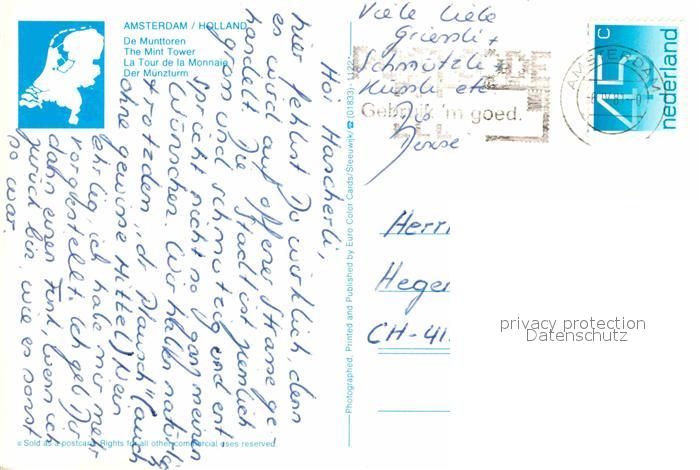 AMSTERDAM / HOLLAND
De Munttoren
The Mint Tower
La Tour de la Monnaie
Der Münzturm
Hoi Hascherli,
hier fehlst Du wirklich, denn
es wird auf offener Strasse ge-
handelt. Die Stadt ist ziemlich
gross und schmutzig und ent-
spricht nicht so ganz meinen
Wünschen. Wir hatten natürlich
trotzdem "dr Plausch" (auch
ohne gewisse Mittel). Nein
ehrlig, ich habe mir mehr
vorgestellt. Ich geb Dir
dann einen Funk, wenn ich
zurück bin, wie es sonst
so war.
Viele liebe
Griessli +
Schmützli +
Küssli etc.
Gebruik 'm goed.
AMSTERDAM
45 C
nederland
Photographed, Printed and Published by Euro Color Cards/Sleeuwijk/ ☎ (01833)-
Herrn
Hegen
CH-41
privacy protection
Datenschutz
Sold as a postcard. Rights for all other commercial uses reserved.